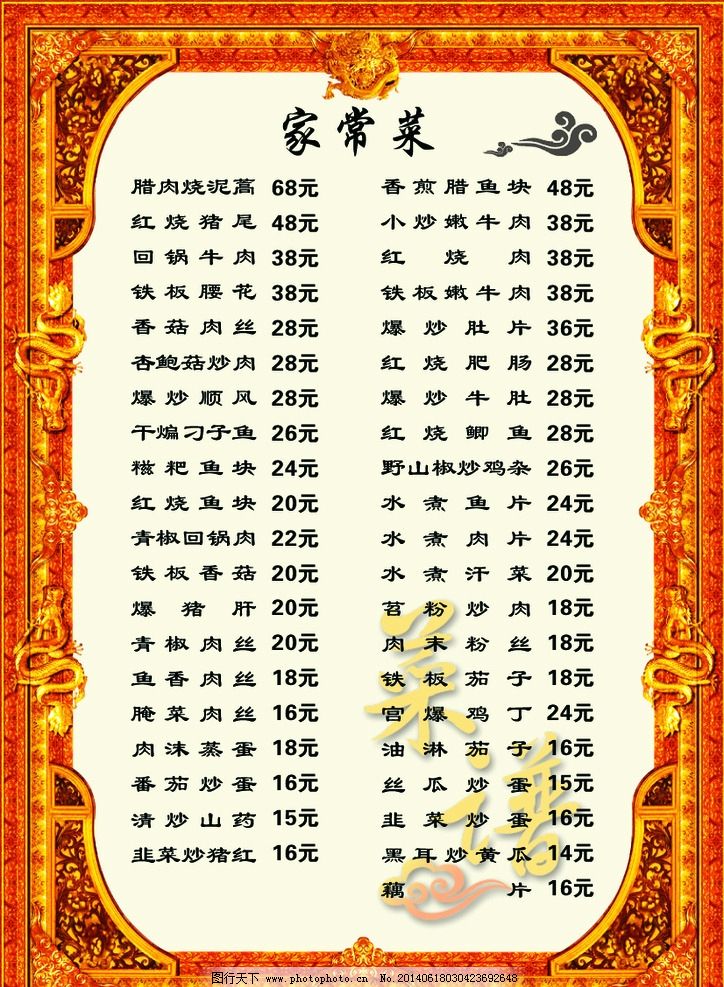 家常菜
腊肉烧泥蒿 68元
红烧猪尾 48元
回锅牛肉 38元
铁板腰花 38元
香菇肉丝 28元
杏鲍菇炒肉 28元
爆炒顺风 28元
干煸刁子鱼 26元
糍粑鱼块 24元
红烧鱼块 20元
青椒回锅肉 22元
铁板香菇 20元
爆猪肝 20元
青椒肉丝 20元
鱼香肉丝 18元
腌菜肉丝 16元
肉沫蒸蛋 18元
番茄炒蛋 16元
清炒山药 15元
韭菜炒猪红 16元
香煎腊鱼块 48元
小炒嫩牛肉 38元
红烧肉 38元
铁板嫩牛肉 38元
爆炒肚片 36元
红烧肥肠 28元
爆炒牛肚 28元
红烧鲫鱼 28元
野山椒炒鸡杂 26元
水煮鱼片 24元
水煮肉片 24元
水煮汗菜 20元
苕粉炒肉 18元
肉末粉丝 18元
铁板茄子 18元
宫爆鸡丁 24元
油淋茄子 16元
丝瓜炒蛋 15元
韭菜炒蛋 16元
黑耳炒黄瓜 14元
藕片 16元
菜谱
图行天下 www.photophoto.cn No.20140618030423692648